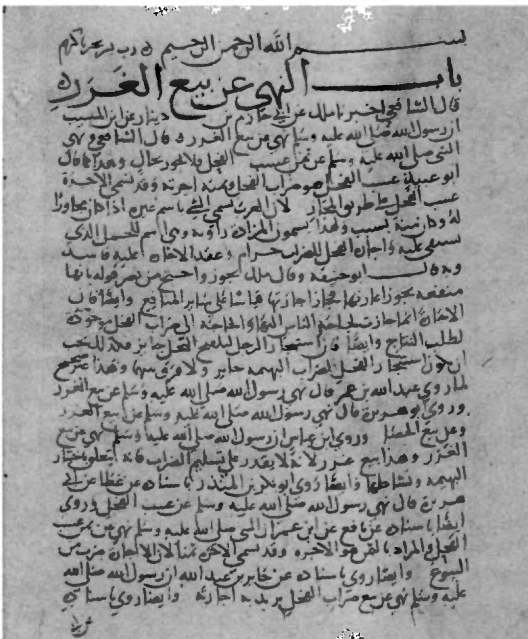 بسم الله الرحمن الرحيم رب يسر
باب النهي عن بيع الغرر
قال الشافعي اخبرنا ملك عن ابي حازم بن دينار عن ابن المسيب
ان رسول الله صلى الله عليه وسلم نهى عن بيع الغرر قال الشافعي ونهى
النبي صلى الله عليه وسلم عن ثمن عسب الفحل ولا يجوز بحال وهذا كما قال
ابو عبيد عسب الفحل هو ضراب الفحل وثمنه اجرته وقد تسمى الاجرة
عسب الفحل على طريق المجاز لان العرب تسمي الشي باسم غيره اذا كان مجاورا
له وكان منه بسبب ولهذا يسمون المزادة راوية وهي اسم للجمل الذي
يستقى عليه واجارة الفحل للضراب حرام وعقد الاجارة عليه فاسد
وبه قال ابو حنيفه وقال ملك يجوز واحتج من نصر قوله بانها
منفعه يجوز اعارتها فجاز اجارتها قياسا على ساير المنافع وايضا فان
الاجارة انما جازت لحاجة الناس اليها والحاجة الى ضراب الفحل موجودة
لطلب النتاج وايضا فان استيجار الرجل لتلقيح النخل جايز فكذلك يجب
ان يكون استيجار الفحل لضراب البهيمه جايز ولا فرق بينهما وهذا غير صحيح
لما روى عبد الله بن عمر قال نهى رسول الله صلى الله عليه وسلم عن بيع الغرر
وروى ابو هريرة قال نهى رسول الله صلى الله عليه وسلم عن بيع الغرر
وعن بيع وروى ابن عباس ان رسول الله صلى الله عليه وسلم نهى عن بيع
الغرر وهذا بيع غرر لانه لا يقدر على تسليم الضراب فانه يتعلق باختيار
البهيمه ونشاطها وايضا روى ابو بكر بن المنذر باسناده عن عطا عن ابي
هريرة قال نهى رسول الله صلى الله عليه وسلم عن عسب الفحل وروى
ايضا باسناده عن نافع عن ابن عمر ان النبي صلى الله عليه وسلم نهى عن ثمن عسب
الفحل والمراد بالثمن هو الاجره وقد تسمى الاجرة ثمنا لان الاجارة ضرب من
البيوع وايضا روى باسناده عن جابر بن عبد الله ان رسول الله صلى الله
عليه وسلم نهى عن بيع ضراب الفحل يريد به اجارته وايضا روى باسناده